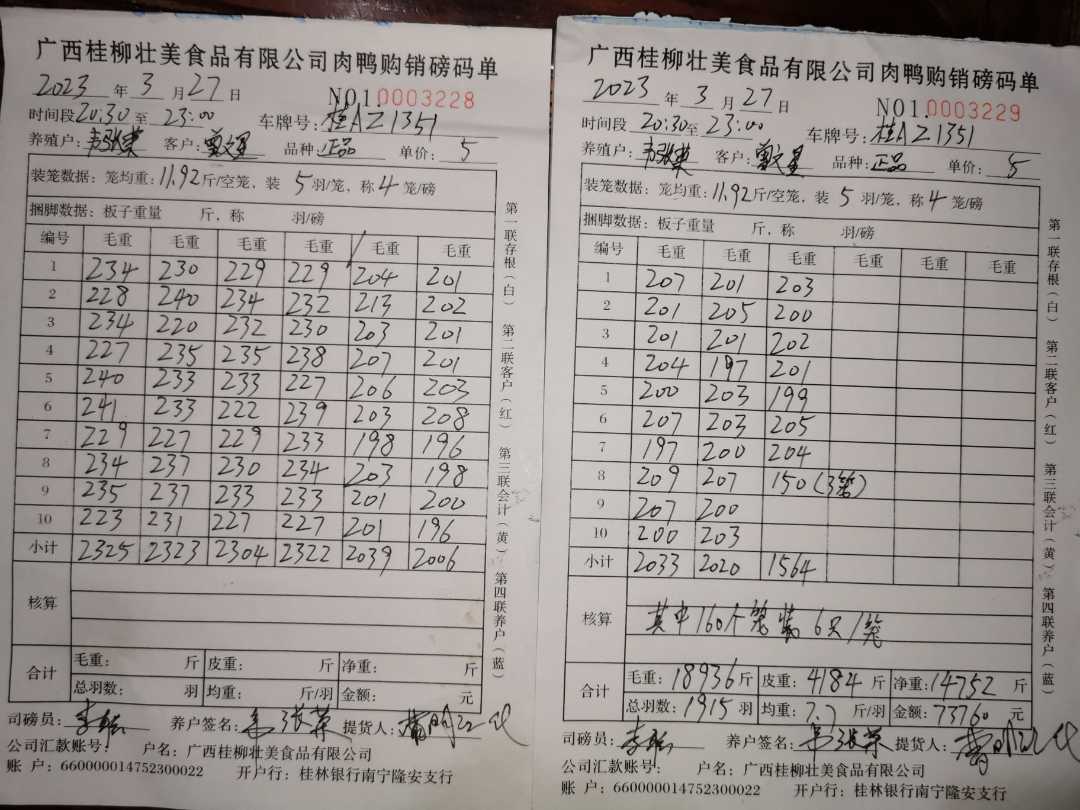 广西桂柳壮美食品有限公司肉鸭购销磅码单
2023 年 3 月 27 日 NO1.0003228
时间段 20:30 至 23:00 车牌号: 桂AZ1351
养殖户: 韦张荣 客户: 品种: 正品 单价: 5
装笼数据: 笼均重: 11.92 斤/空笼, 装 5 羽/笼, 称 4 笼/磅
捆脚数据: 板子重量 斤, 称 羽/磅
编号 毛重 毛重 毛重 毛重 毛重 毛重
1 234 230 229 229 204 201
2 228 240 234 232 213 202
3 234 220 232 230 203 201
4 227 235 235 238 207 201
5 240 233 233 227 206 203
6 241 233 222 239 203 208
7 229 227 229 233 198 196
8 234 237 230 234 203 198
9 235 237 233 233 201 200
10 223 231 227 227 201 196
小计 2325 2323 2304 2322 2039 2006
核算
合计 毛重: 斤 皮重: 斤 净重: 斤
总羽数: 羽 均重: 斤/羽 金额: 元
司磅员: 养户签名: 韦张荣 提货人:
公司汇款账号: 户名: 广西桂柳壮美食品有限公司
账 户: 660000014752300022 开户行: 桂林银行南宁隆安支行
第一联存根(白) 第二联客户(红) 第三联会计(黄) 第四联养户(蓝)
广西桂柳壮美食品有限公司肉鸭购销磅码单
2023 年 3 月 27 日 NO1.0003229
时间段 20:30 至 23:00 车牌号: 桂AZ1351
养殖户: 韦张荣 客户: 品种: 正品 单价: 5
装笼数据: 笼均重: 11.92 斤/空笼, 装 5 羽/笼, 称 4 笼/磅
捆脚数据: 板子重量 斤, 称 羽/磅
编号 毛重 毛重 毛重 毛重 毛重 毛重
1 207 201 203
2 201 205 200
3 201 201 202
4 204 197 201
5 200 203 199
6 207 203 205
7 197 200 204
8 209 207 150(3笼)
9 207 200
10 200 203
小计 2033 2020 1564
核算 其中160个笼装6只/笼
合计 毛重: 18936 斤 皮重: 4184 斤 净重: 14752 斤
总羽数: 1915 羽 均重: 7.7 斤/羽 金额: 73760 元
司磅员: 养户签名: 韦张荣 提货人:
公司汇款账号: 户名: 广西桂柳壮美食品有限公司
账 户: 660000014752300022 开户行: 桂林银行南宁隆安支行
第一联存根(白) 第二联客户(红) 第三联会计(黄) 第四联养户(蓝)